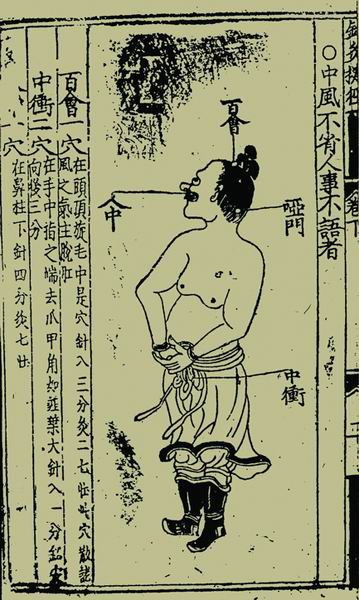 ○中風不省人事不語者
百會
啞門
人中
中衝
百會一穴
在頭頂旋毛中是穴針入三分灸二七壯此穴散諸
風之氣主脫肛
中衝二穴
在手中指之端去爪甲角如韭葉大針入一分
向後三分
一穴
在鼻柱下針四分灸七壯